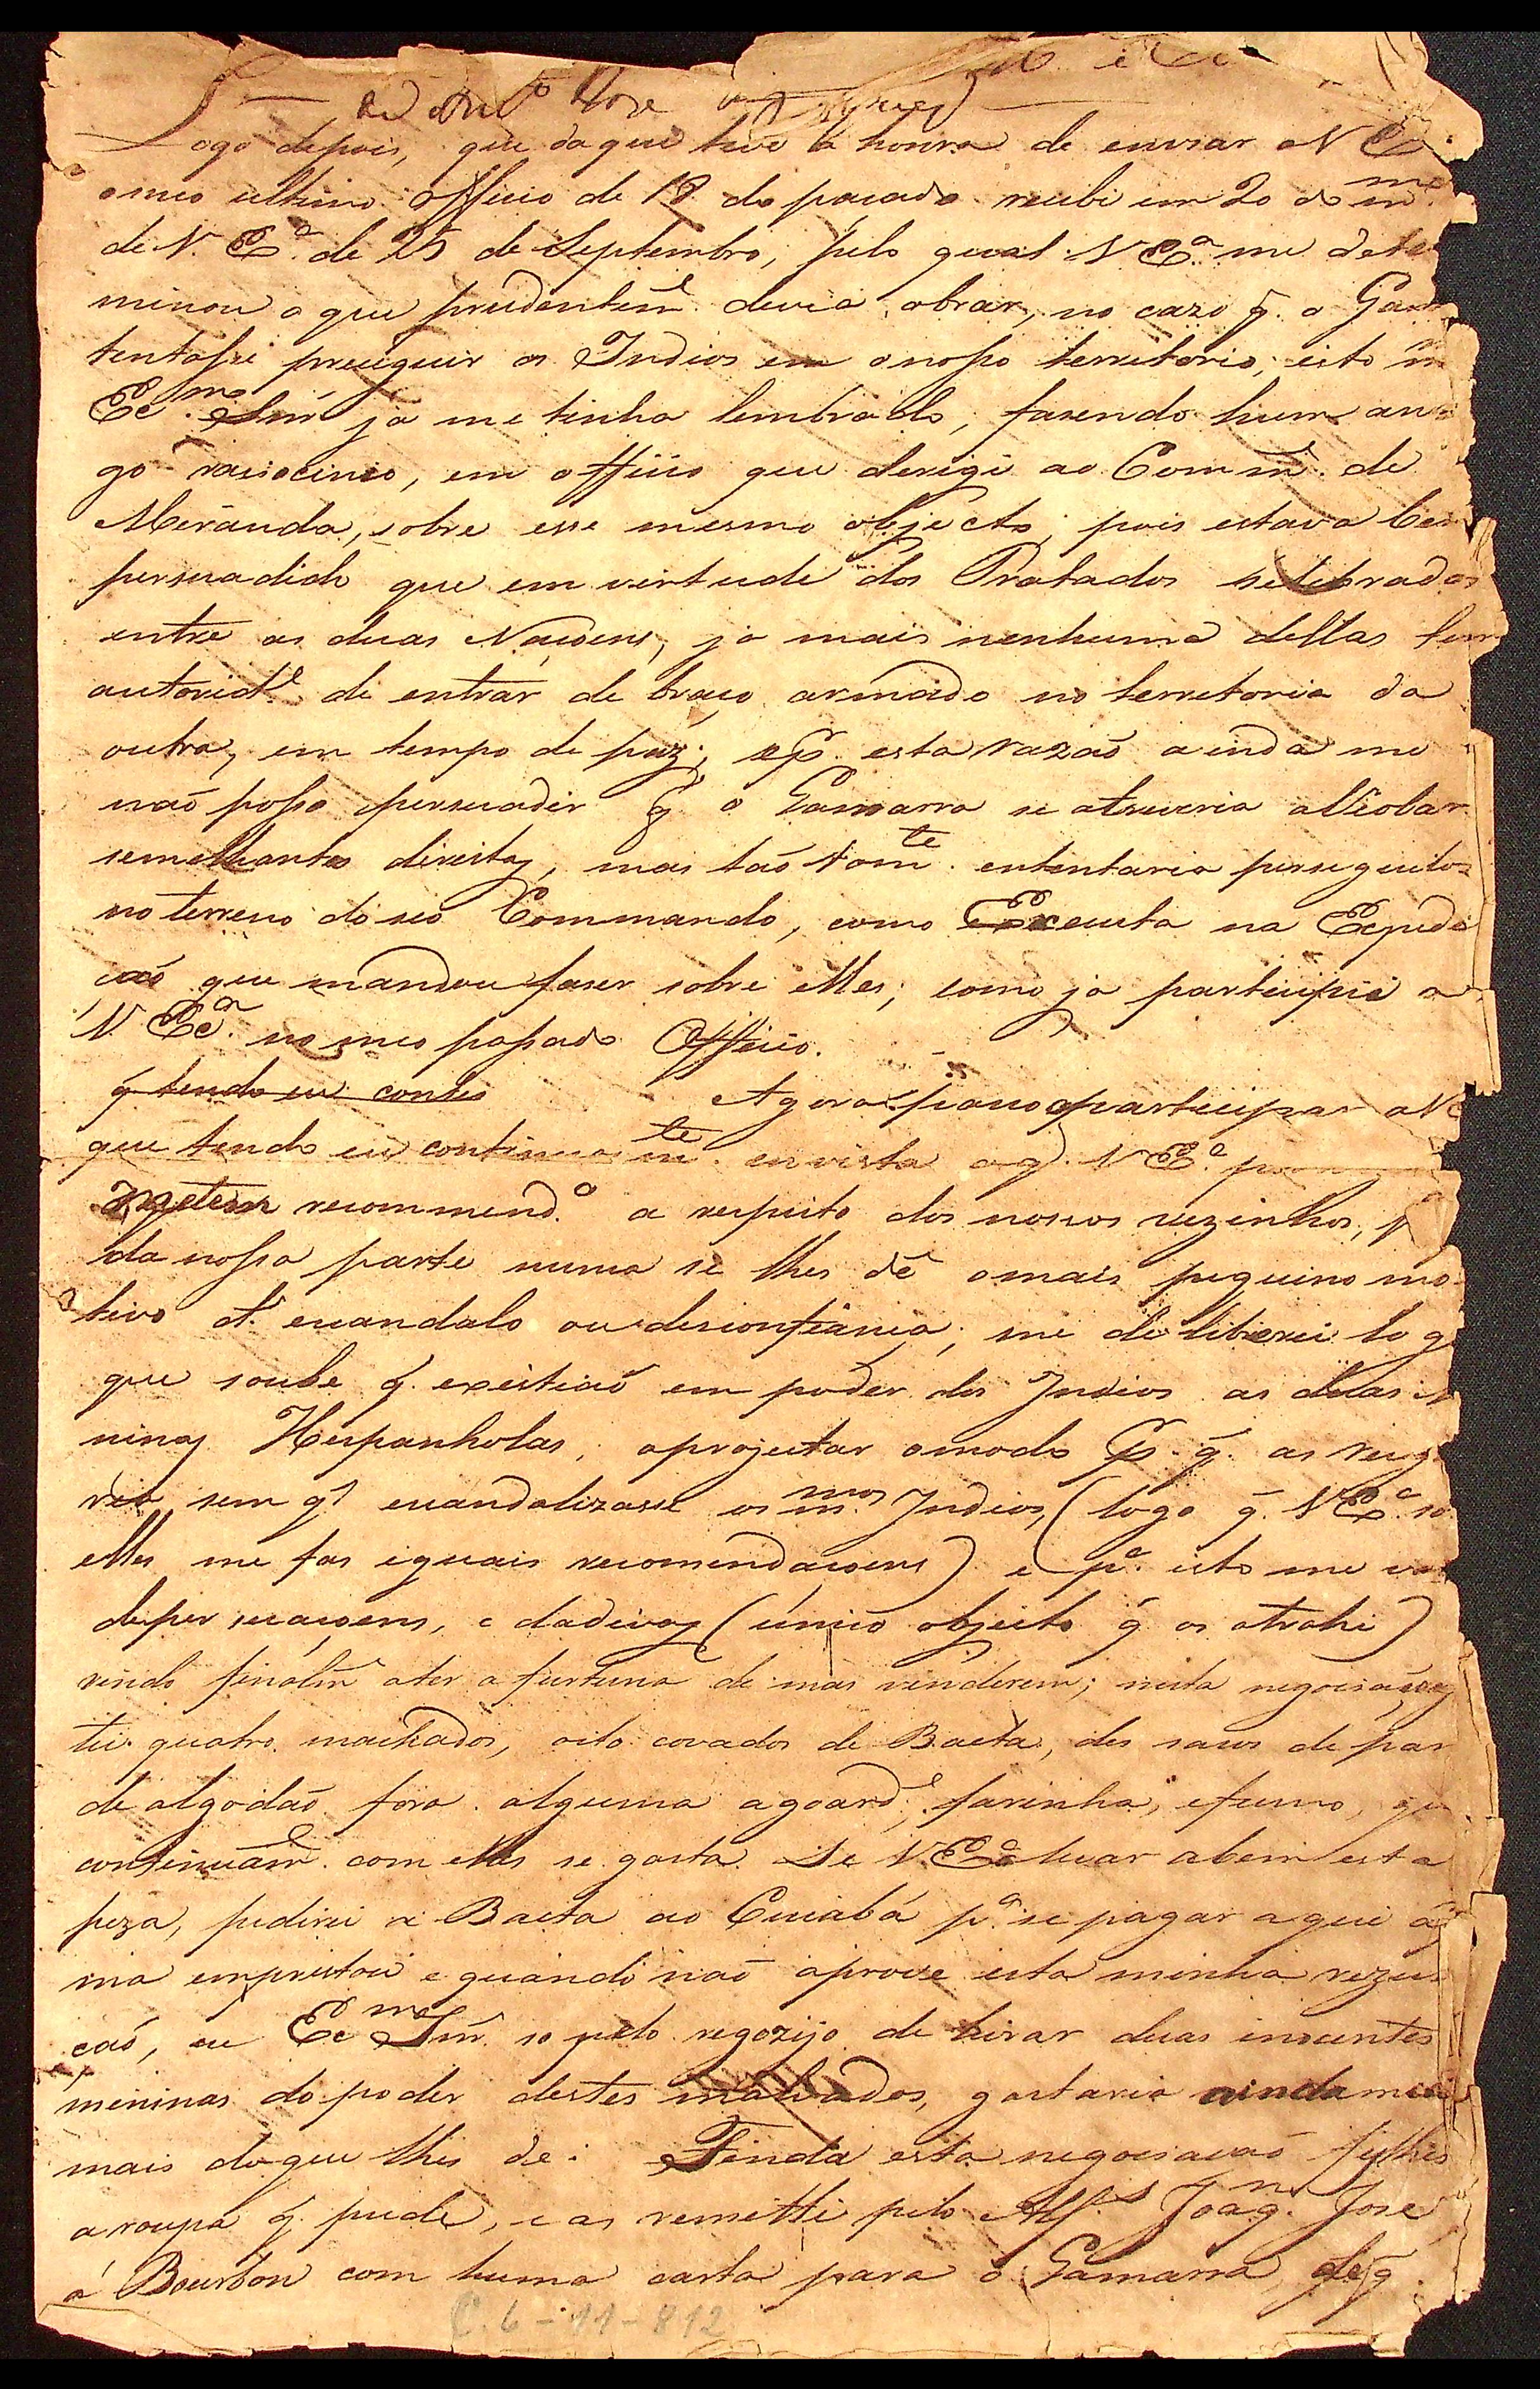 Logo depois, que daqui tive a honra de enviar a V Exª
o meo ultimo Officio de 18 do paçado recibi em 20 do mmº
de V. Exª de 25 de Septembro, pelo qual V Exª me deter
minou o que prudentemᵉ devia obrar, no cazo q̃ o Gam
tentaſse preciguir os Indios em o noſso territorio; isto m
Exmo Snr ja me tinha lembrado, fasendo hum an
go raciocinio, em officio que derigi ao Commᵉ de
Miranda, sobre esse mesmo objecto; pois estava bem
persuadido que em virtude dos Tratados selebrados
entre as duas Naçoens, ja mais nenhuma dellas tem
autoridᵉ de entrar de braço armado no territorio da
outra, em tempo de paz; e pr esta razaõ ainda me
naõ poſso persuadir q̃ o Gamarra se atreveria a Violar
semelhantes direitos, mas taõ somte ententaria perseguilos
no terreno do seo Commando, como Executa na Expedi
caõ que mandou faser sobre elles; como ja participei a
V. Exª no meo paſsado Officio.
q̃ tendo eu contin
Agora paço a participar a V E
que tendo eu continuamte em vista o q̃ V Exª
recommendº a respeito dos nossos vezinhos, q
da noſsa parte nunca se lhes dê o mais piqueino mo
tivo dᵉ escandalo ou desconfiança; me deliberei logo
que soube q̃ existiaõ em poder dos Indios as duas me
ninas Hespanholas, a projectar o modo pr q̃ as resga
ria sem q̃ escandalizasse os mmos Indios, (logo q̃ V Exª so
elles me fas iguais recomendaçoens) e pª isto me
de persuaçoens, e dadivas (único objecto q̃ os atrahi)
vindo finalmᵉ a ter a furtuna de mas venderem; nesta negociaçaõ
tei quatro machados, oito covados de Baeta, des varas de pan
de algodaõ fora alguma agoardᵉ, farinha, e fumo, que
continuãmᵉ com elles se gasta. Se V. Exª levar a bem esta
peza, pedirei a Baeta ao Cuiabá pª se pagar aqui a q
ma emprestou e quando naõ aprove esta minha rezulu
caõ, eu Exmo Snr so pelo regozijo de tirar duas inocentes
meninas do poder destes malvados, gastaria ainda muito
mais do que lhes dei. Finda esta negociacaõ fis lhes
a roupa q̃ pude, e as remitti pelo Alfˢ Joaqm Jose
á Bourbon com huma carta para o Gamarra, de q̃
C. 6-11-812